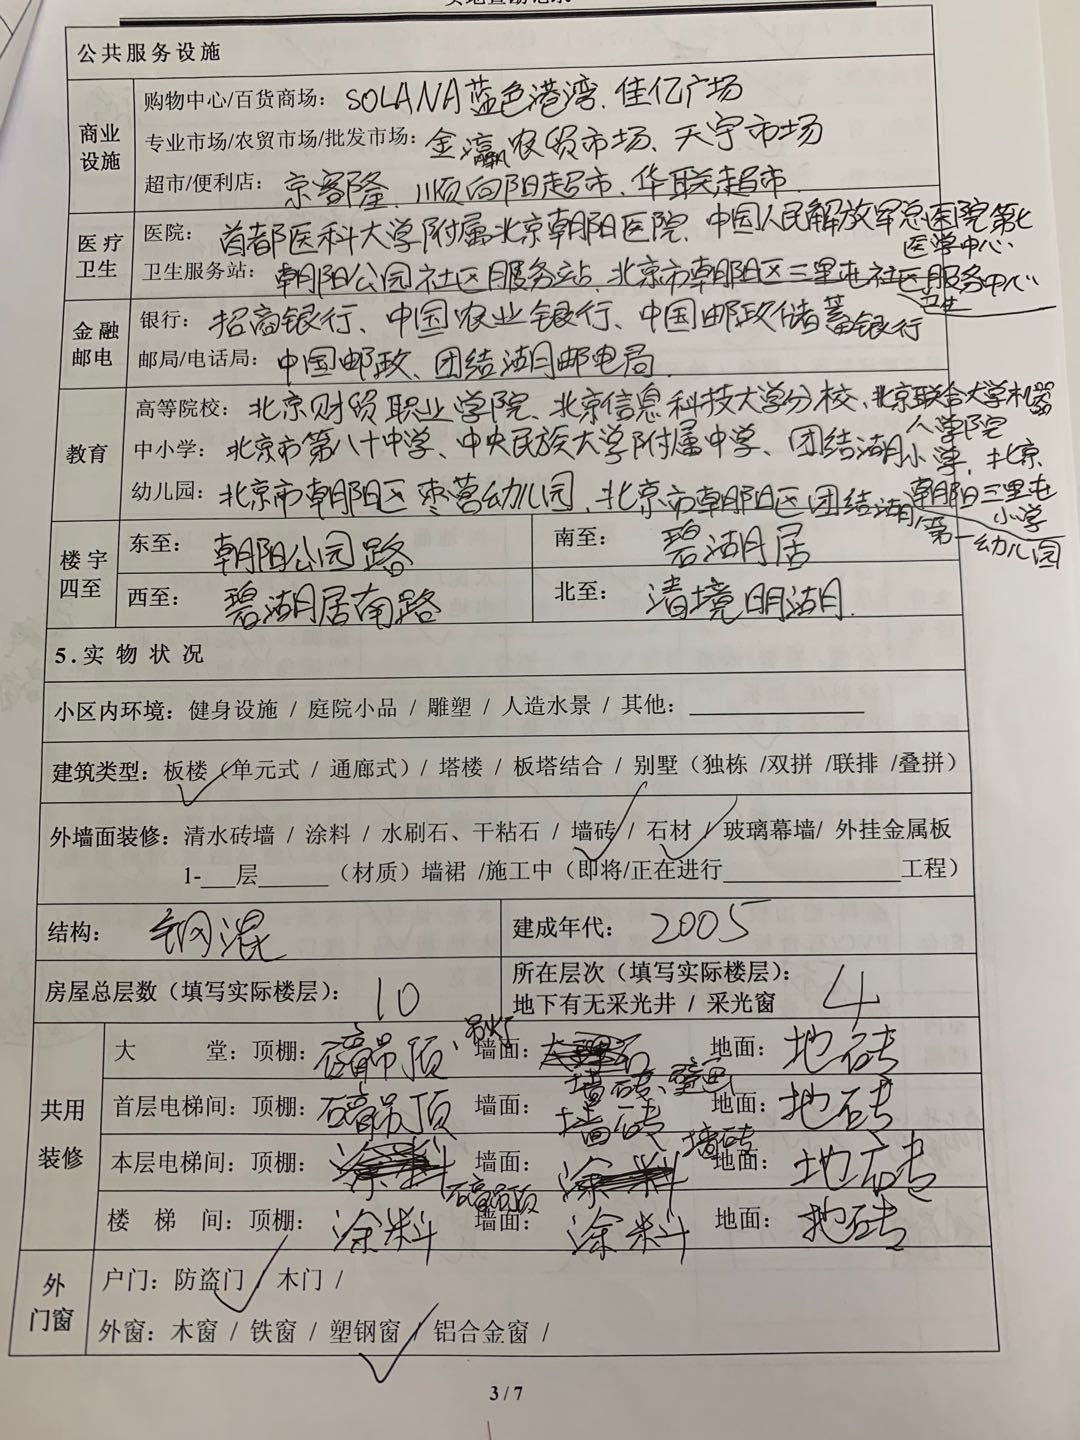 公共服务设施
商业设施
购物中心/百货商场：SOLANA蓝色港湾、佳亿广场
专业市场/农贸市场/批发市场：金瀛农贸市场、天宇市场
超市/便利店：京客隆、顺向阳超市、华联超市
医疗卫生
医院：首都医科大学附属北京朝阳医院、中国人民解放军总医院第七医学中心
卫生服务站：朝阳公园社区服务站、北京市朝阳区三里屯社区卫生服务中心
金融邮电
银行：招商银行、中国农业银行、中国邮政储蓄银行
邮局/电话局：中国邮政、团结湖邮电局
教育
高等院校：北京财贸职业学院、北京信息科技大学分校、北京联合大学机器人学院
中小学：北京市第八十中学、中央民族大学附属中学、团结湖小学、北京朝阳三里屯小学
幼儿园：北京市朝阳区枣营幼儿园、北京市朝阳区团结湖第一幼儿园
楼宇四至
东至：朝阳公园路 南至：碧湖居
西至：碧湖居南路 北至：渚境明湖
5.实物状况
小区内环境：健身设施 / 庭院小品 / 雕塑 / 人造水景 / 其他：
建筑类型：板楼（单元式 / 通廊式）/ 塔楼 / 板塔结合 / 别墅（独栋 /双拼 /联排 /叠拼）
外墙面装修：清水砖墙 / 涂料 / 水刷石、干粘石 / 墙砖 / 石材 / 玻璃幕墙/ 外挂金属板
1-___层______（材质）墙裙 /施工中（即将/正在进行________________工程）
结构：钢混 建成年代：2005
房屋总层数（填写实际楼层）：10 所在层次（填写实际楼层）：4
地下有无采光井 / 采光窗
共用装修
大 堂：顶棚：石膏吊顶、吊灯 墙面：墙砖、壁画 地面：地砖
首层电梯间：顶棚：石膏吊顶 墙面：墙砖 地面：地砖
本层电梯间：顶棚：石膏吊顶 墙面：墙砖 地面：地砖
楼 梯 间：顶棚：涂料 墙面：涂料 地面：地砖
外门窗
户门：防盗门 / 木门 /
外窗：木窗 / 铁窗 / 塑钢窗 / 铝合金窗 /
3 / 7